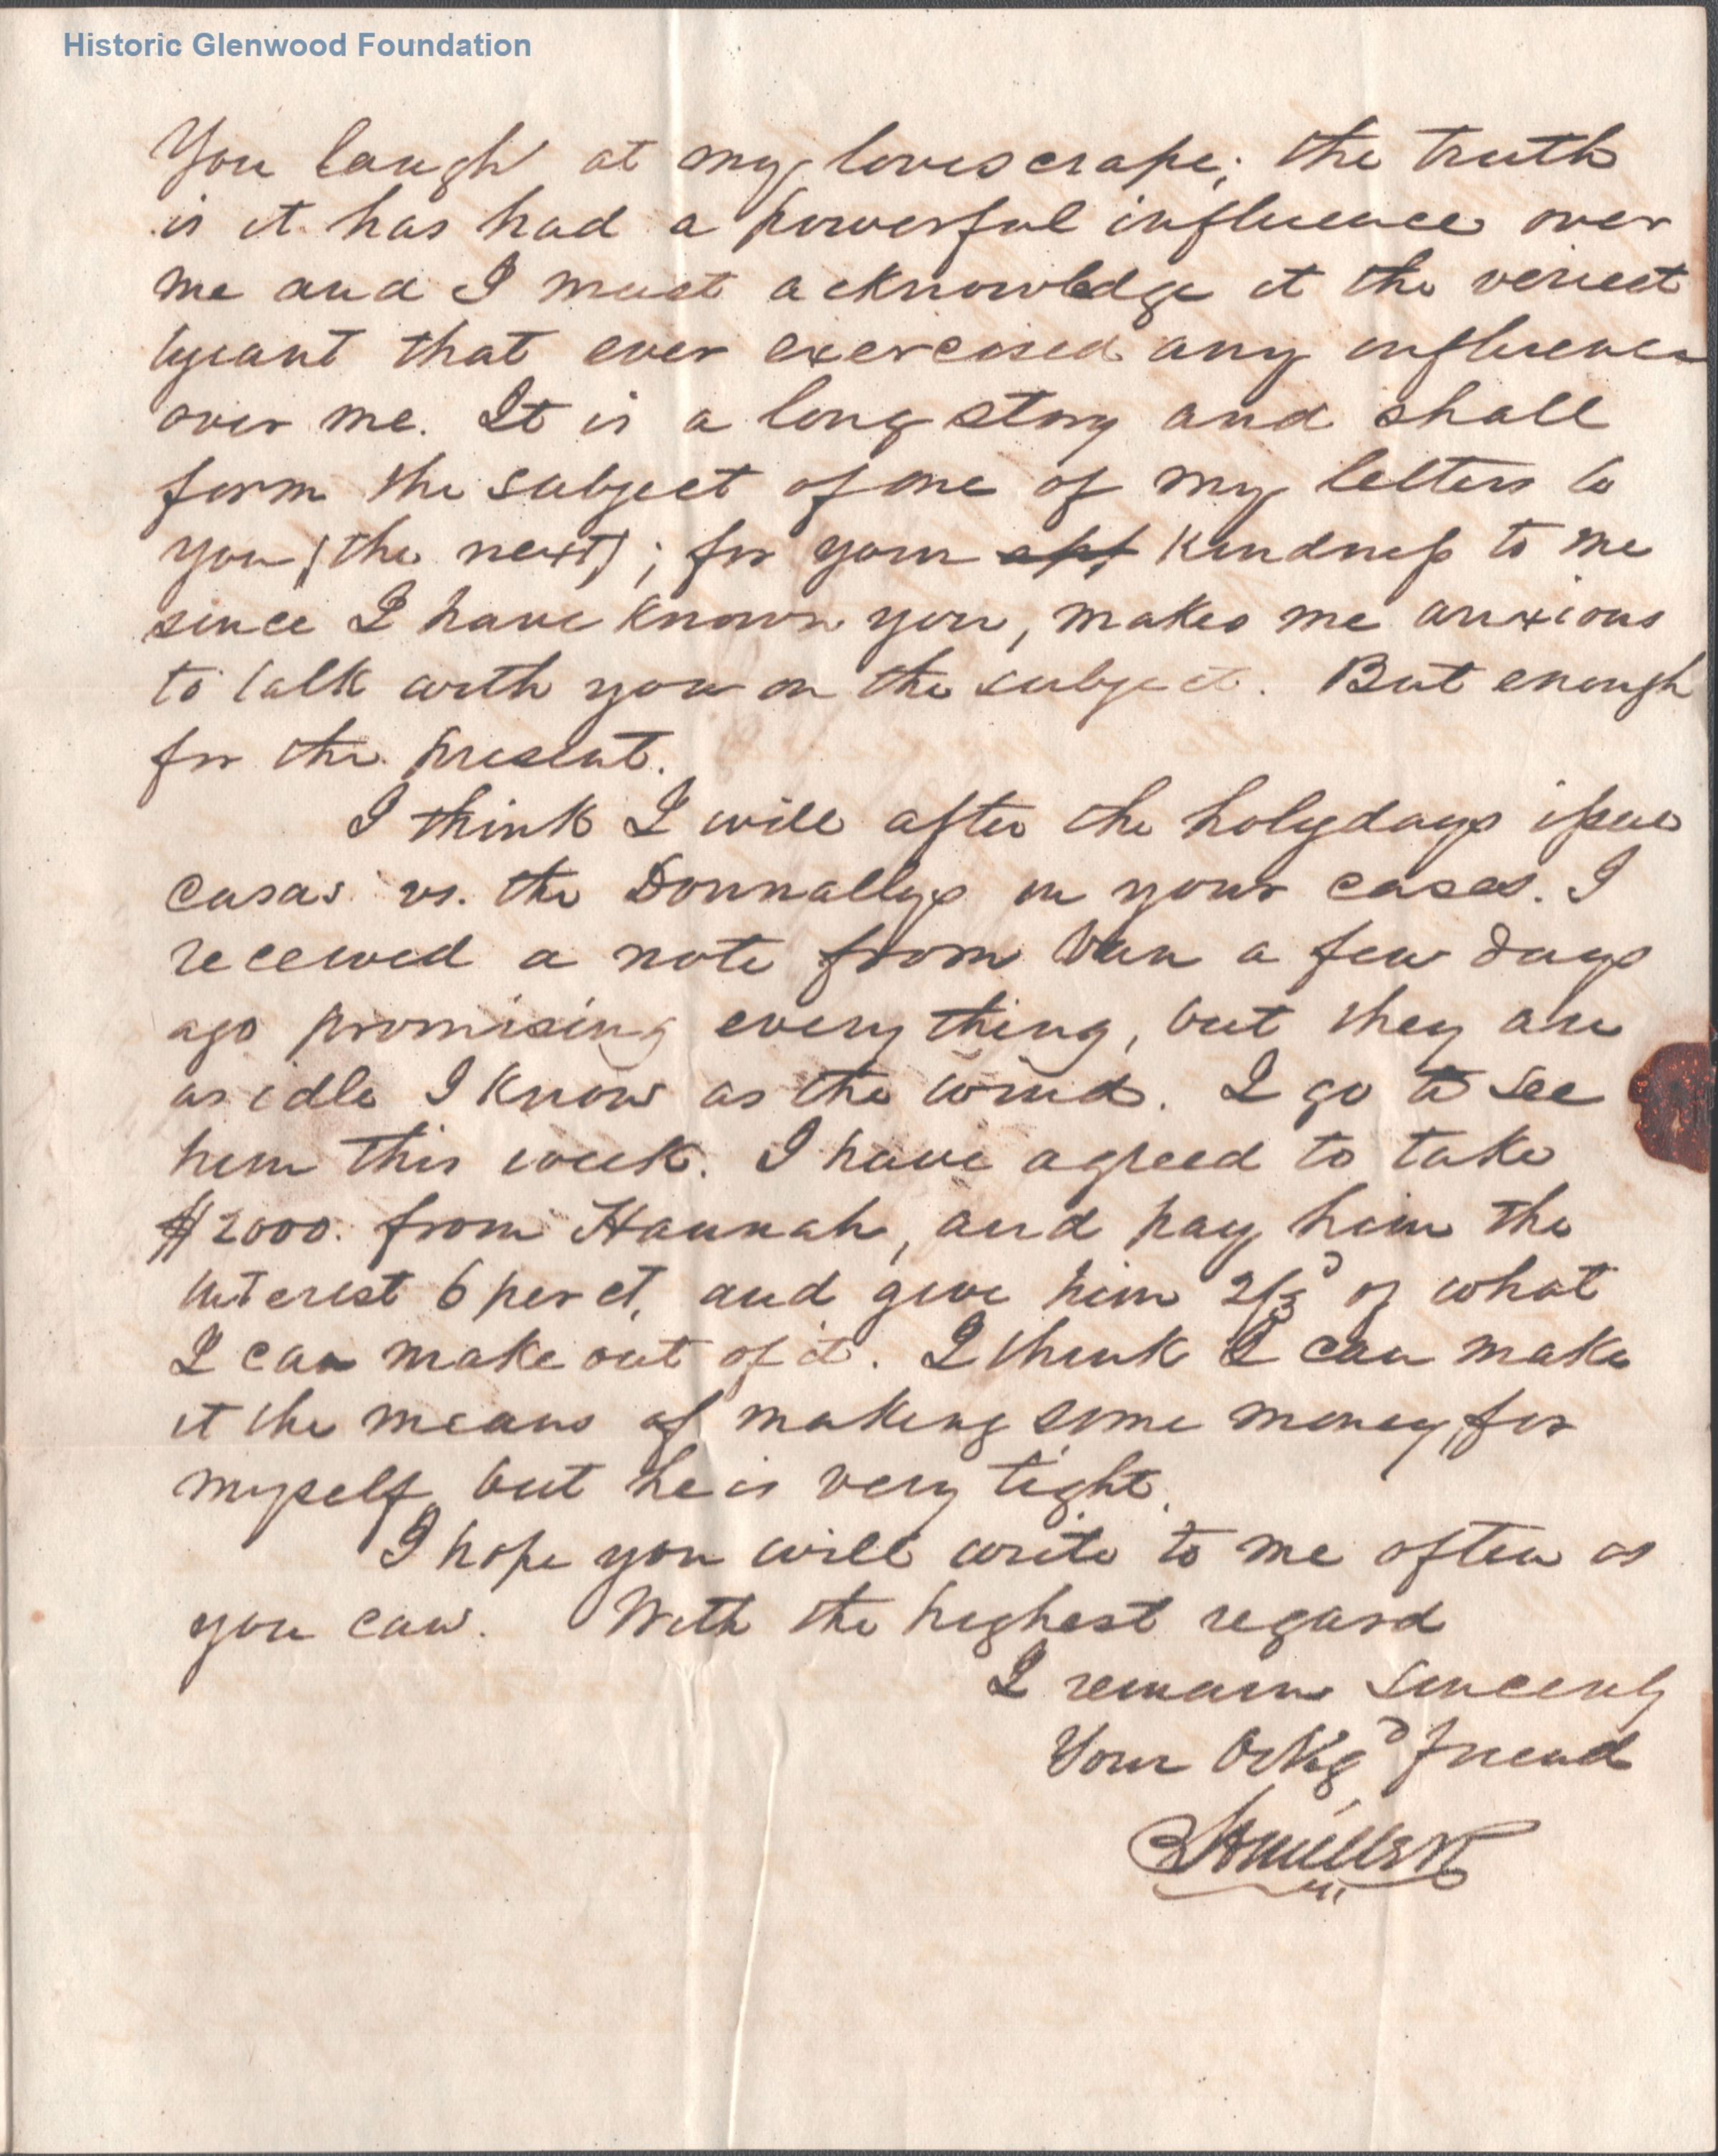 Historic Glenwood Foundation
You laugh at my lovescrape; the truth
is it has had a powerful influence over
me and I must acknowledge it the veriest
tyrant that ever exercised any influence
over me. It is a long story and shall
form the subject of one of my letters to
you (the next); for your kindness to me
since I have known you, makes me anxious
to talk with you on the subject. But enough
for the present.
I think I will after the holydays issue
casas vs. the Donnallys in your cases. I
received a note from Van a few days
ago promising every thing, but they are
as idle I know as the wind. I go to see
him this week. I have agreed to take
$2000. from Hannah, and pay him the
interest 6 per ct, and give him 2/3d of what
I can make out of it. I think I can make
it the means of making some money for
myself, but he is very tight.
I hope you will write to me often as
you can. With the highest regard
I remain sincerely
Your friend